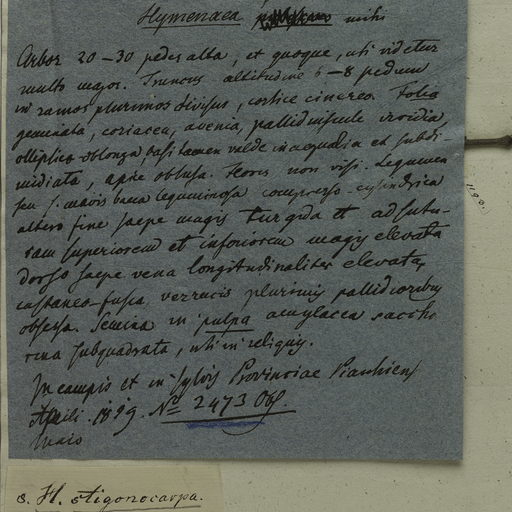 Hymenaea mihi
Arbor 20–30 pedes alta, et quoque, uti videtur
multo major. Truncus altitudine 6–8 pedum
in ramos plurimos divisus, cortice cinereo. Folia
geminata, coriacea, avenia, pallidiuscule viridia,
elliptico-oblonga, basi tamen valde inaequalia et subdi-
midiata, apice obtusa. Flores non visi. Legumen
seu s. mavis bacca leguminosa compresso-cylindrica
altero fine saepe magis turgida et ad sutu-
ram superiorem et inferiorem magis elevata
dorso saepe vena longitudinaliter elevata,
castaneo-fusca, verrucis plurimis pallidioribus
obsessa. Semina in pulpa amylacea saccha
rina subquadrata, uti in reliquis.
In campis et in sylvis Provinciae Piauhiens
Aprili 1819. No 2473 Obs.
Maio
1193.
8. H. stigonocarpa.